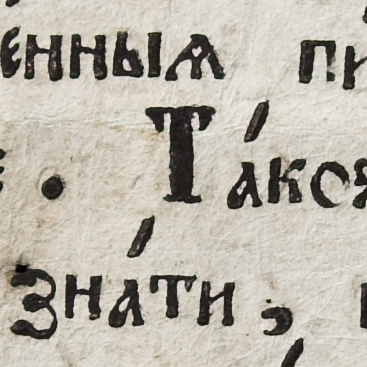 енныѧ пи
. Та́коѧ
зна́ти ,